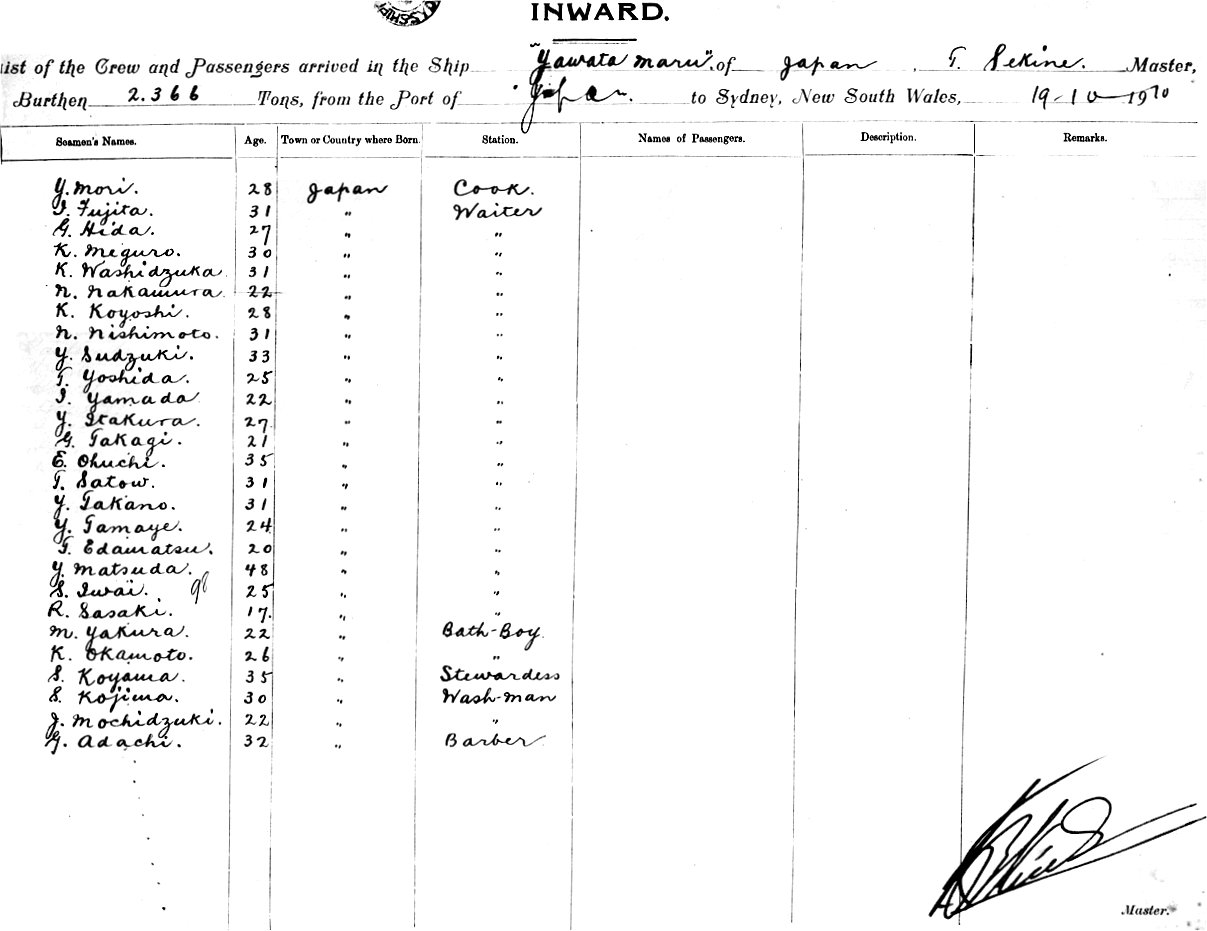 INWARD.
ist of the Crew and Passengers arrived in the Ship "Yawata Maru" of Japan, T. Sekine. Master,
Burthen 2.366 Tons, from the Port of Japan. to Sydney, New South Wales, 19-10-1910
Seamen's Names. Age. Town or Country where Born. Station. Names of Passengers. Description. Remarks.
Y. Mori. 28 Japan Cook.
I. Fujita. 31 " Waiter
G. Hida. 27 " "
K. Meguro. 30 " "
K. Washidzuka 31 " "
N. Nakamura 22 " "
K. Koyoshi. 28 " "
N. Nishimoto. 31 " "
Y. Sudzuki. 33 " "
T. Yoshida. 25 " "
I. Yamada 22 " "
Y. Itakura. 27 " "
G. Takagi. 21 " "
E. Ohuchi. 35 " "
T. Satow. 31 " "
Y. Takano. 31 " "
Y. Tamaye. 24 " "
T. Edamatsu. 20 " "
Y. Matsuda. 48 " "
S. Iwai. 98 25 " "
R. Sasaki. 17. " "
M. Yakura. 22 " Bath-Boy.
K. Okamoto. 26 " "
S. Koyama. 35 " Stewardess
S. Kojima. 30 " Wash-man
J. Mochidzuki. 22 " "
G. Adachi. 32 " Barber
Master.